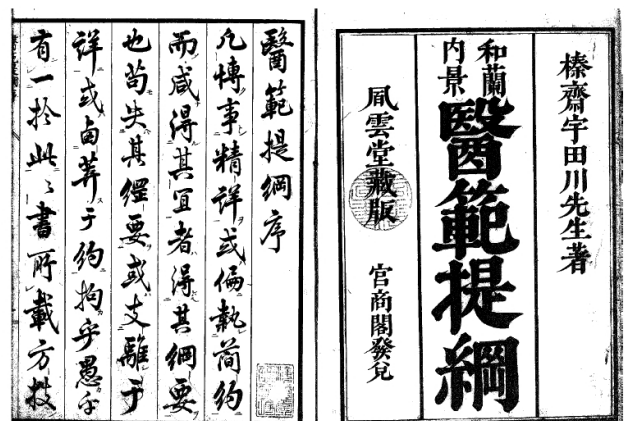 榛齋宇田川先生著
和蘭
内景
醫範提綱
風雲堂藏版
官商閣發兌
醫範提綱序
凡慱事精詳或偏執簡約
而咸得其宜者得其綱要
也苟失其綱要或支離于
詳或鹵莽于約拘乎愚乎
有一於此〻書所載方技